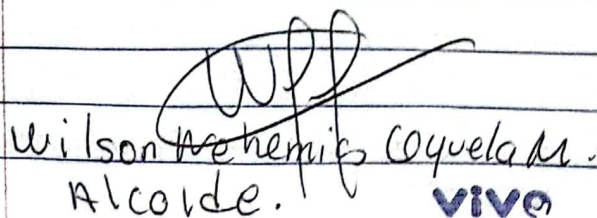 Wilson Nehemias Coyuela M.
Alcalde.
vivo